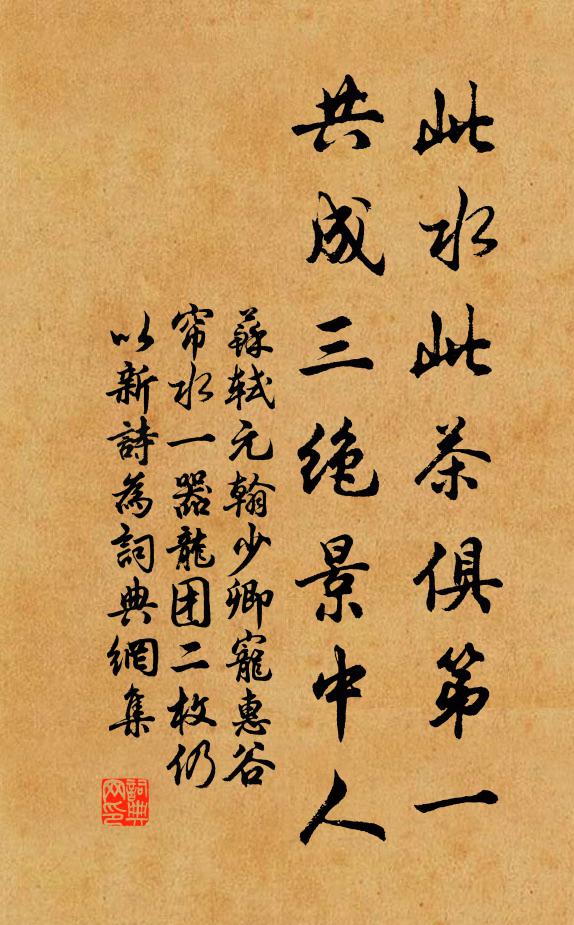 此水此茶俱第一
共成三绝景中人
蘇軾元翰少卿寵惠谷
帘水一器龍团二枚仍
以新詩為詞典網集
詞典
网印